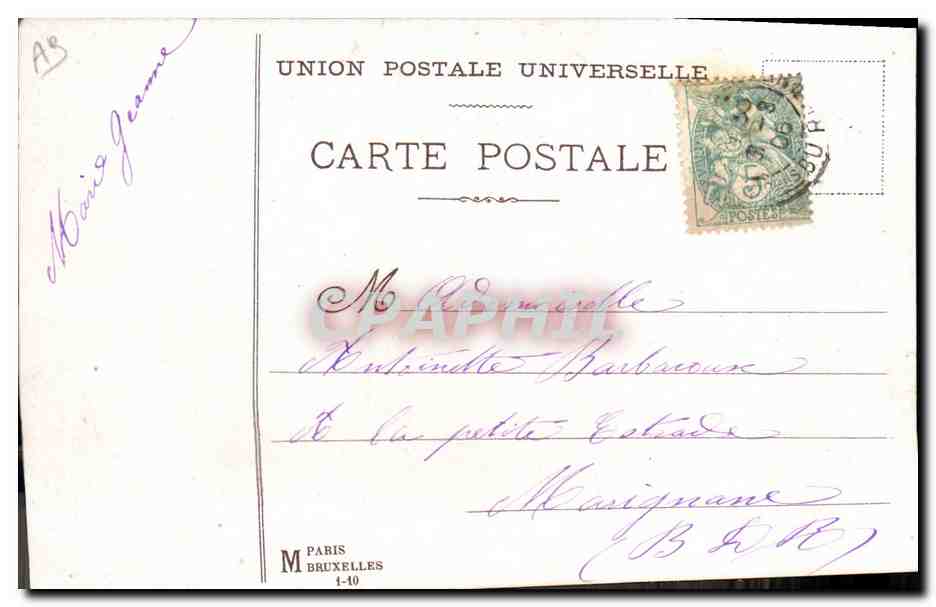 A9
Marie Jeanne
UNION POSTALE UNIVERSELLE
CARTE POSTALE
POSTES
06
Mademoiselle
CPAPHIL
Antoinette Barbaroux
A la petite Estrade
Marignane
(B D R)
M PARIS
BRUXELLES
1-10